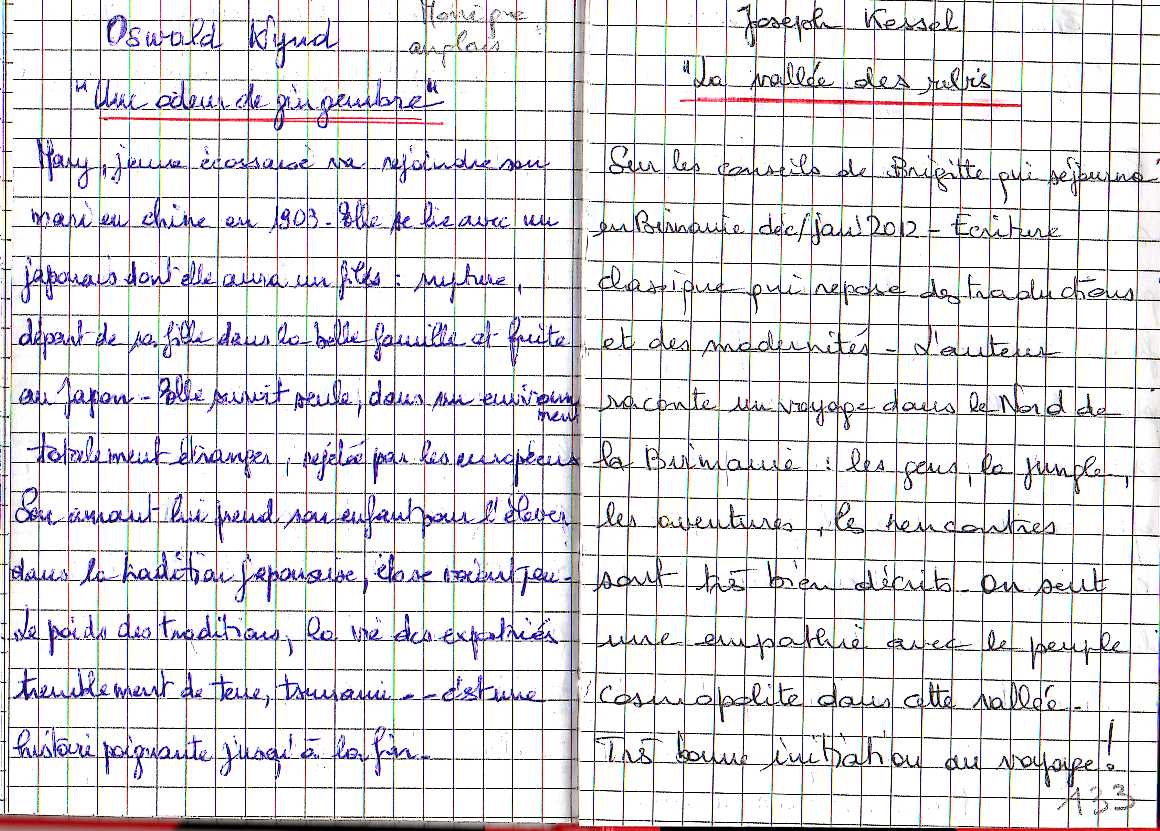 Oswald Wynd
Monique
anglais
"Une odeur de gingembre"
Mary, jeune écossaise va rejoindre son
mari en chine en 1903 - Elle se lie avec un
japonais dont elle aura un fils : rupture,
départ de sa fille dans la belle famille et fuite
au Japon - Elle survit seule, dans un environn
ment
totalement étranger, rejetée par les européens
Son amant lui prend son enfant pour l'élever
dans la tradition japonaise, ils se voient peu -
Le poids des traditions, la vie des expatriés
tremblement de terre, tsunami -- c'est une
histoire poignante jusqu'à la fin -
Joseph Kessel
"La vallée des rubis
Sur les conseils de Brigitte qui séjourna
en Birmanie déc/janv 2012 - Ecriture
classique qui repose des traductions
et des modernités - L'auteur
raconte un voyage dans le Nord de
la Birmanie : les gens, la jungle,
les aventures, les rencontres
sont très bien décrits - On sent
une empathie avec le peuple
cosmopolite dans cette vallée -
Très bonne initiation au voyage !
133